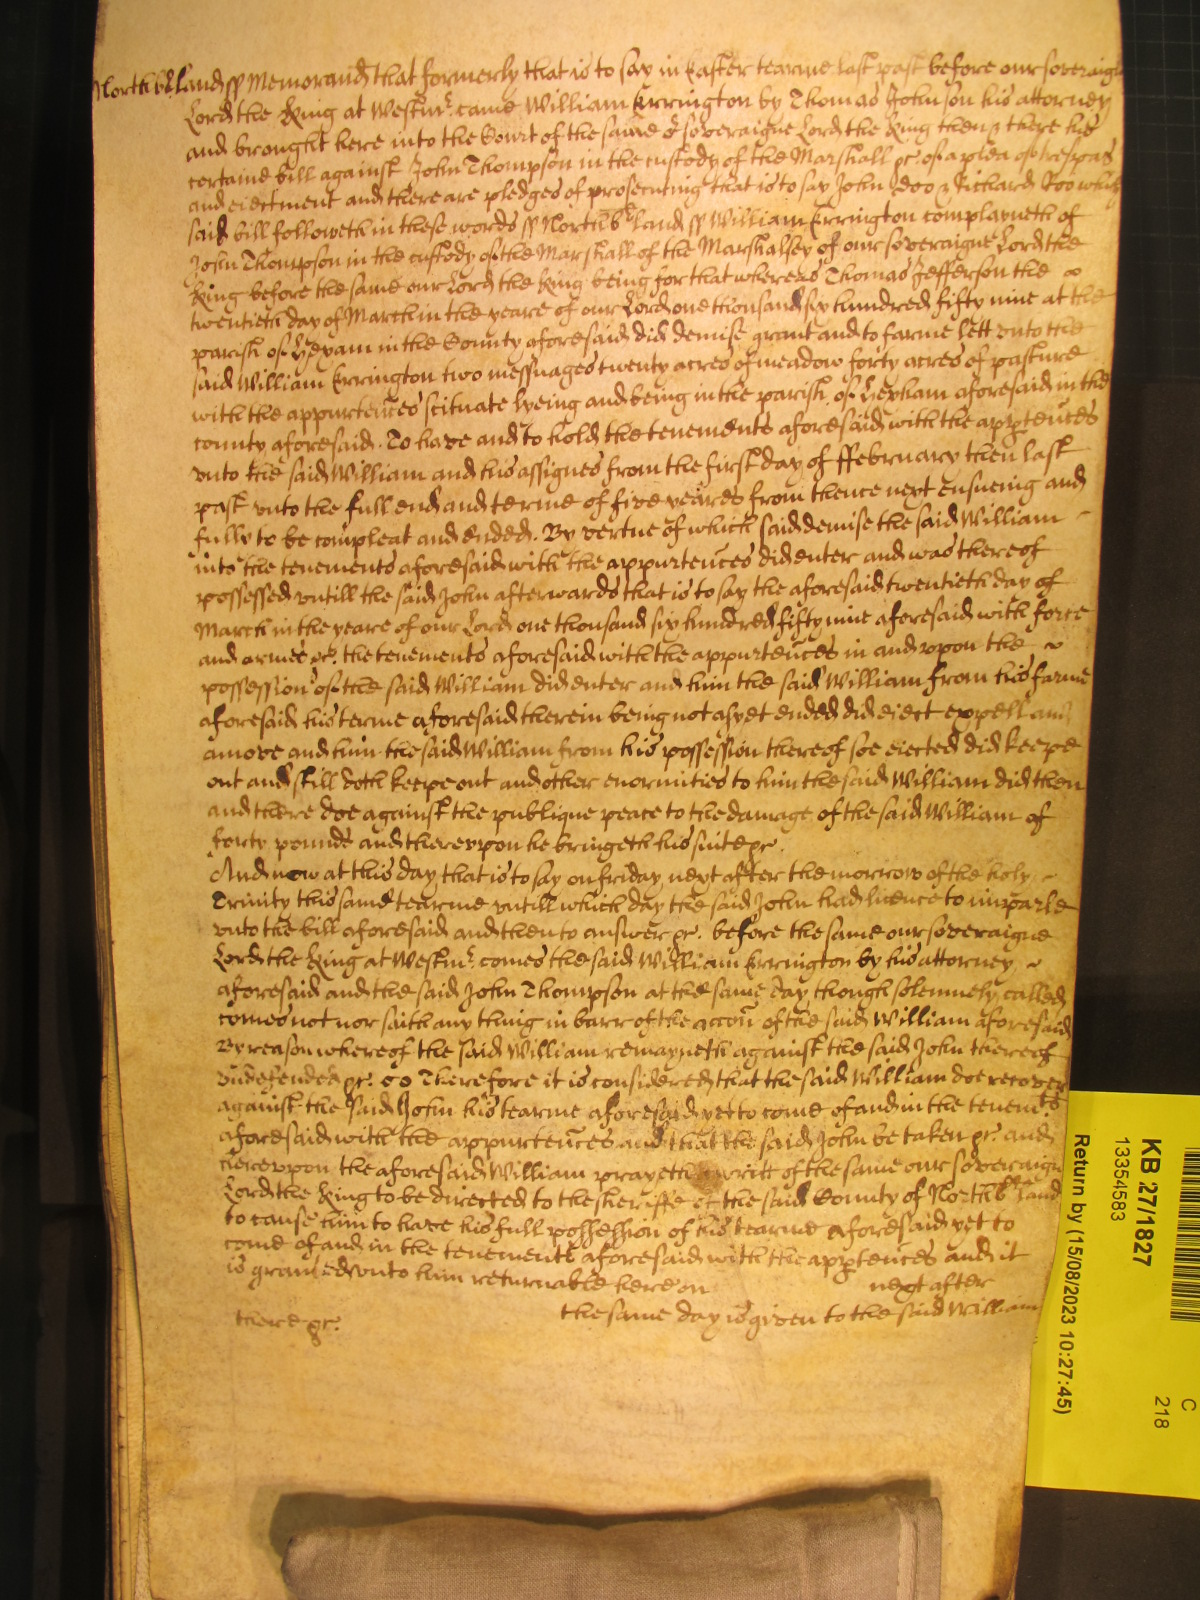 Northb^rland ss Memorand that formerly that is to say in Easter tearme last past before our soveraigne
Lord the King at Westm^r. came William Errington by Thomas Johnson his attorney
and brought here into the Court of the same o^r soveraigne Lord the King then & there his
certaine bill against John Thompson in the custody of the Marshall &c. of a plea of trespas
and eiectment and there are pledges of prosecuting that is to say John Doo & Richard Roo which
said bill followeth in these words ss Northb^rland ss William Errington complayneth of
John Thompson in the custody of the Marshall of the Marshalsey of our soveraigne Lord the
King before the same our Lord the King being for that whereas Thomas Jefferson the
twentieth day of March in the yeare of our Lord one thousand six hundred fifty nine at the
parish of Hexam in the County aforesaid did demise grant and to farme lett unto the
said William Errington two messuages twenty acres of meadow forty acres of pasture
with the appurteñces scituate lyeing and being in the parish of Hexham aforesaid in the
county aforesaid. To have and to hold the tenements aforesaid with the apptẽnces
unto the said William and his assignes from the first day of ffebruary then last
past unto the full end and terme of five yeares from thence next ensueing and
fully to be compleat and ended. By vertue of which said demise the said William
into the tenements aforesaid with the appurteñces did enter and was thereof
possessed untill the said John afterwards that is to say the aforesaid twentieth day of
March in the yeare of our Lord one thousand six hundred fifty nine aforesaid with force
and armes &c. the tenements aforesaid with the appurteñces in and upon the
possession of the said William did enter and him the said William from his farme
aforesaid his terme aforesaid therein being not as yet ended did eiect expell and
amove and him the said William from his possession thereof soe eiected did keepe
out and still doth keepe out and other enormities to him the said William did then
and there doe against the publique peace to the damage of the said William of
forty pounds and thereupon he bringeth his suite &c.
And now at this day that is to say on friday next after the morrow of the holy
Trinity this same tearme untill which day the said John had licence to imparle
unto the bill aforesaid and then to answer &c. before the same our soveraigne
Lord the King at Westm^r. comes the said William Errington by his attorney
aforesaid and the said John Thompson at the same day though solemnely called
comes not nor saith any thing in barr of the accoñ of the said William aforesaid
By reason whereof the said William remayneth against the said John thereof
undefended &c. Therefore it is considered that the said William doe recover
against the said John his tearme aforesaid yet to come of and in the tenem^ts
aforesaid with the appurteñces and that the said John be taken &c. and
hereupon the aforesaid William prayeth writt of the same our soveraigne
Lord the King to be directed to the sheriffe of the said County of Northb^rland
to cause him to have his full possession of his tearme aforesaid yet to
come of and in the tenements aforesaid with the apptẽnces and it
is granted unto him returnable here on next after
the same day is given to the said William
there &c.
KB 27/1827
13354583
Return by (15/08/2023 10:27:45)
C
218